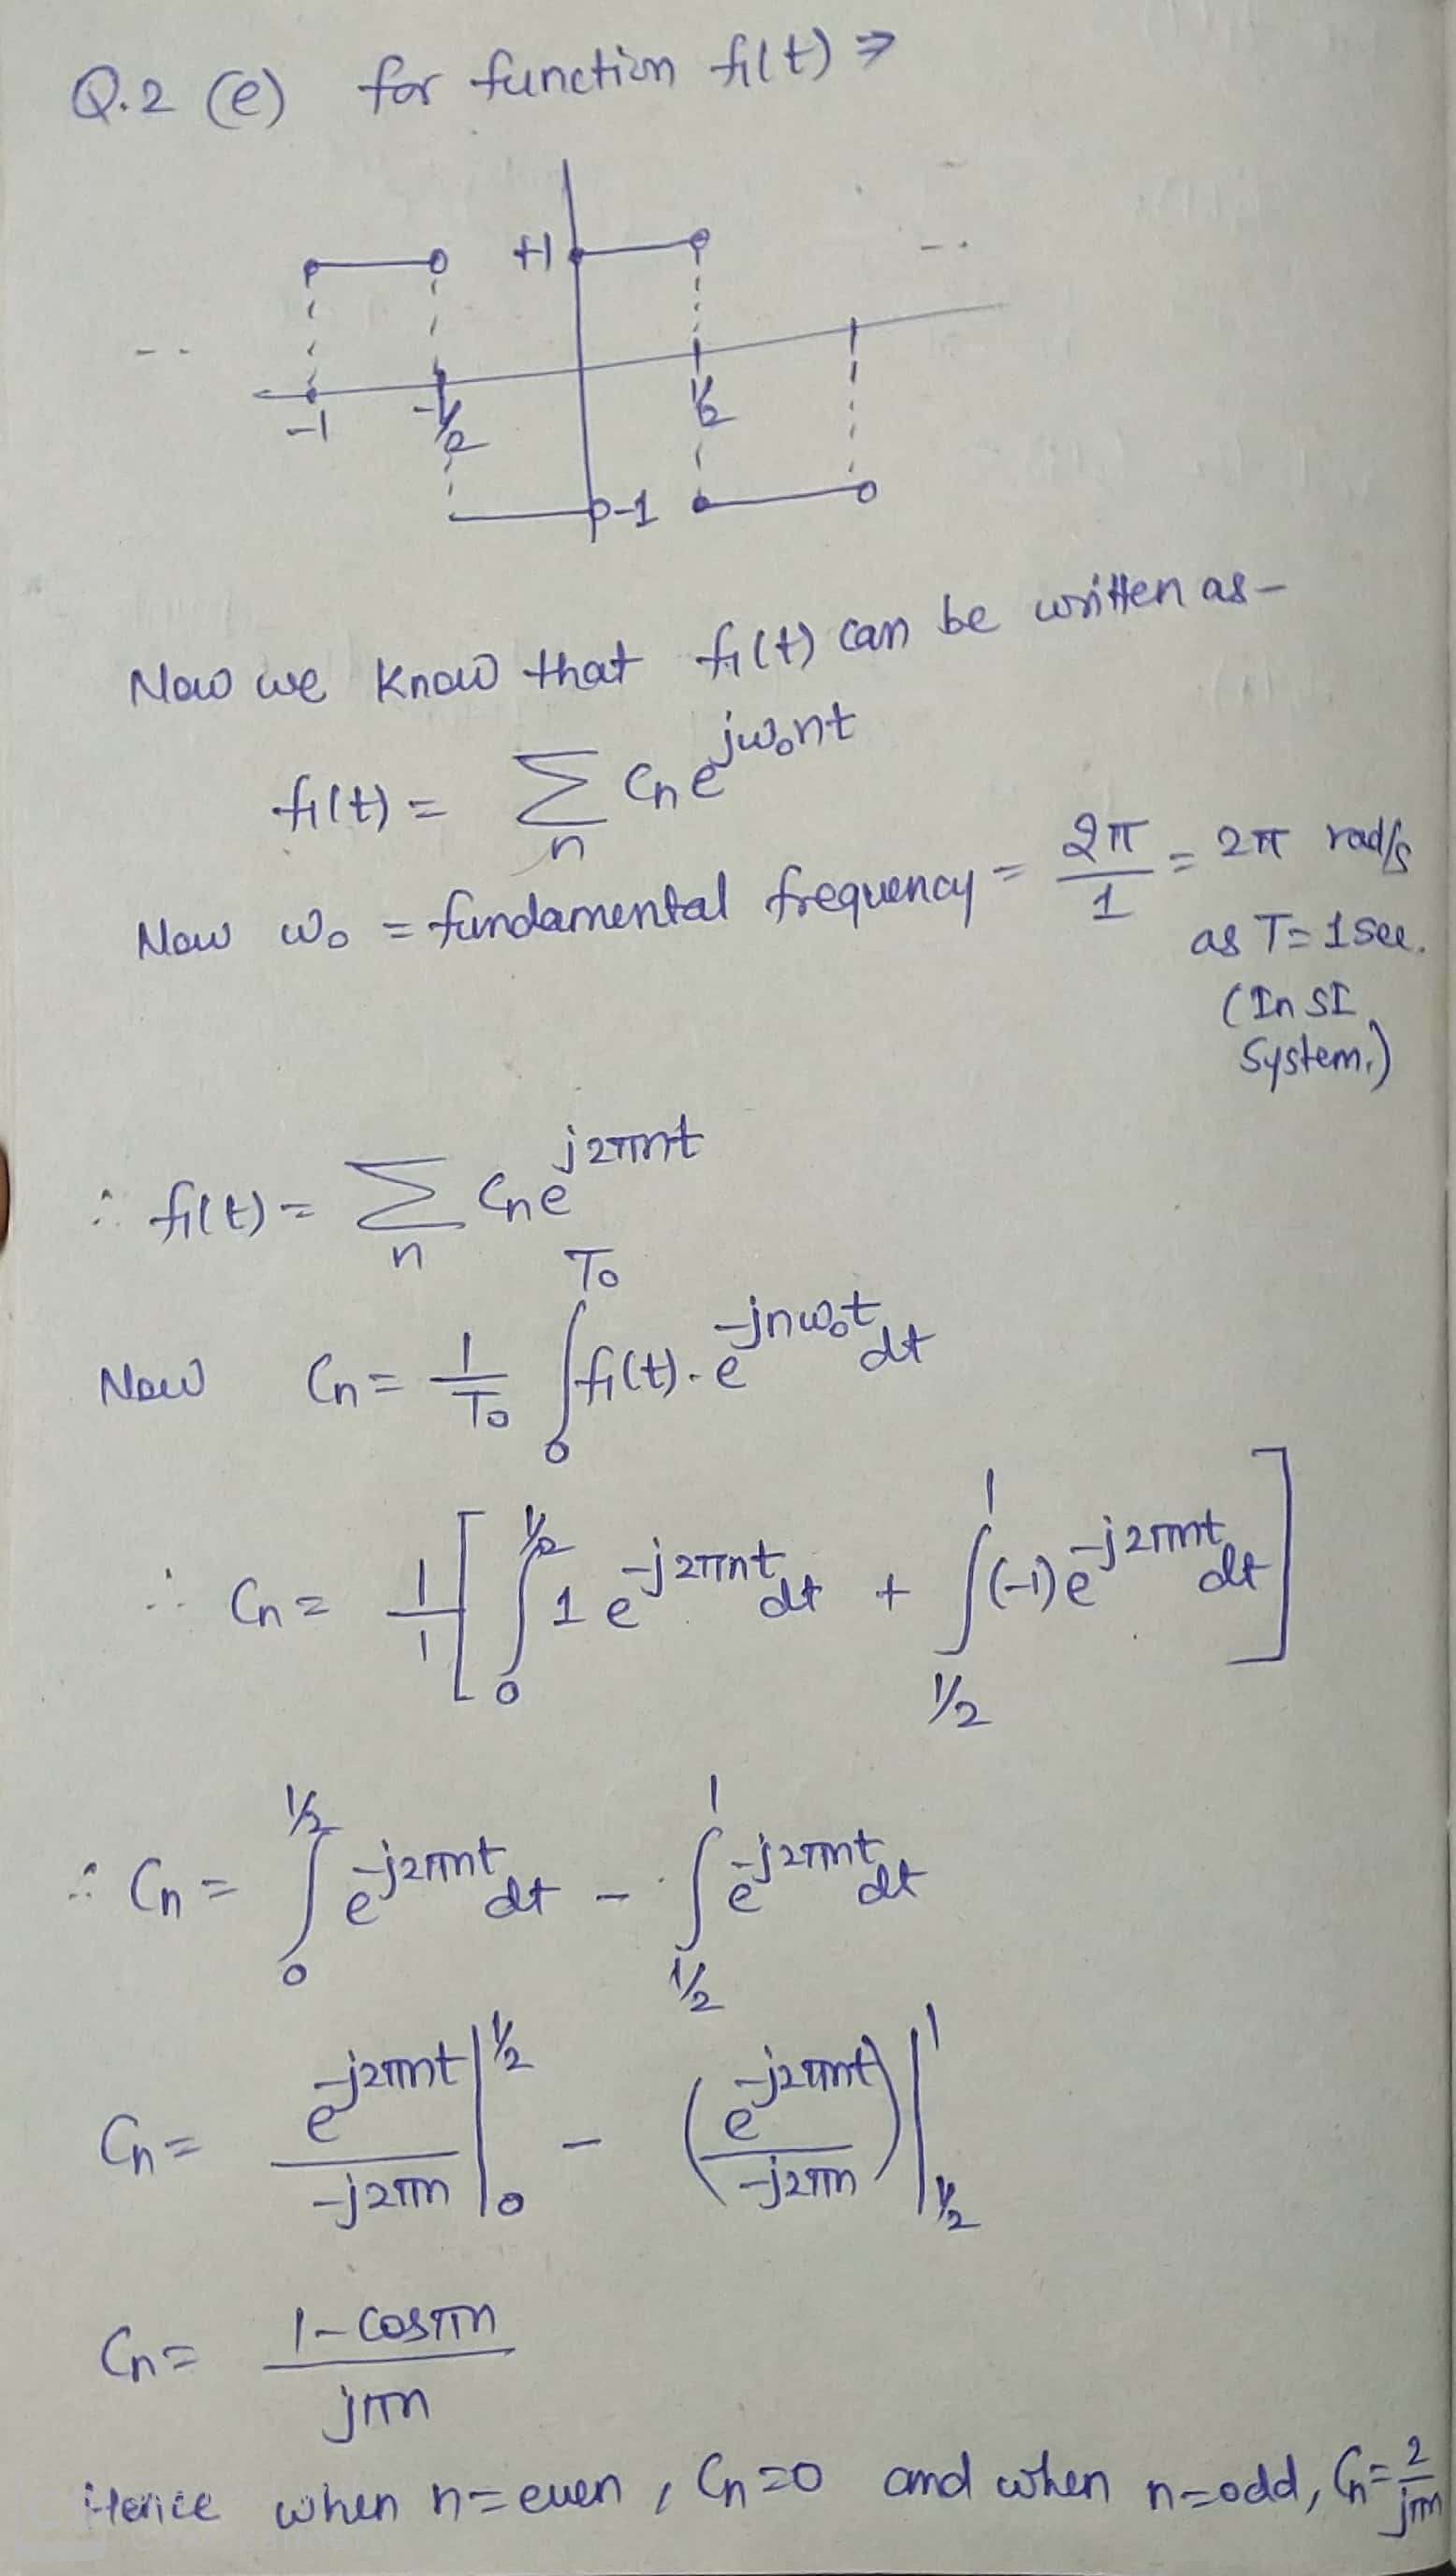 Q.2 (e) for function f₁(t) ⇒
+1
-1
-1/2
1/2
-1
Now we know that f₁(t) can be written as -
f₁(t) = Σ_n Cn e^{jω₀nt}
Now ω₀ = fundamental frequency = 2π/1 = 2π rad/s
as T = 1 sec.
(In SI
System.)
∴ f₁(t) = Σ_n Cn e^{j2πnt}
Now Cn = 1/T₀ ∫_0^{T₀} f₁(t). e^{-jnω₀t} dt
∴ Cn = 1/1 [ ∫_0^{1/2} 1 e^{-j2πnt} dt + ∫_{1/2}^1 (-1) e^{-j2πnt} dt ]
∴ Cn = ∫_0^{1/2} e^{-j2πnt} dt - ∫_{1/2}^1 e^{-j2πnt} dt
Cn = e^{-j2πnt}/-j2πn |_0^{1/2} - (e^{-j2πnt}/-j2πn) |_{1/2}^1
Cn = 1-cosπn/jπn
Hence when n=even, Cn=0 and when n=odd, Cn=2/jπn